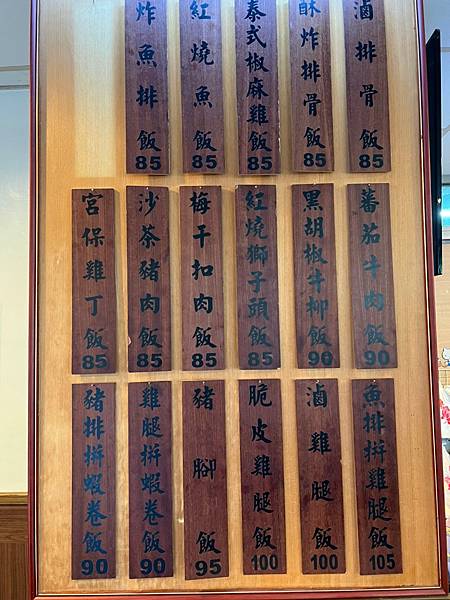 滷排骨飯85
酥炸排骨飯85
泰式椒麻雞飯85
紅燒魚飯85
炸魚排飯85
蕃茄牛肉飯90
黑胡椒牛柳飯90
紅燒獅子頭飯85
梅干扣肉飯85
沙茶豬肉飯85
宮保雞丁飯85
魚排拼雞腿飯105
滷雞腿飯100
脆皮雞腿飯100
豬腳飯95
雞腿拼蝦卷飯90
豬排拼蝦卷飯90